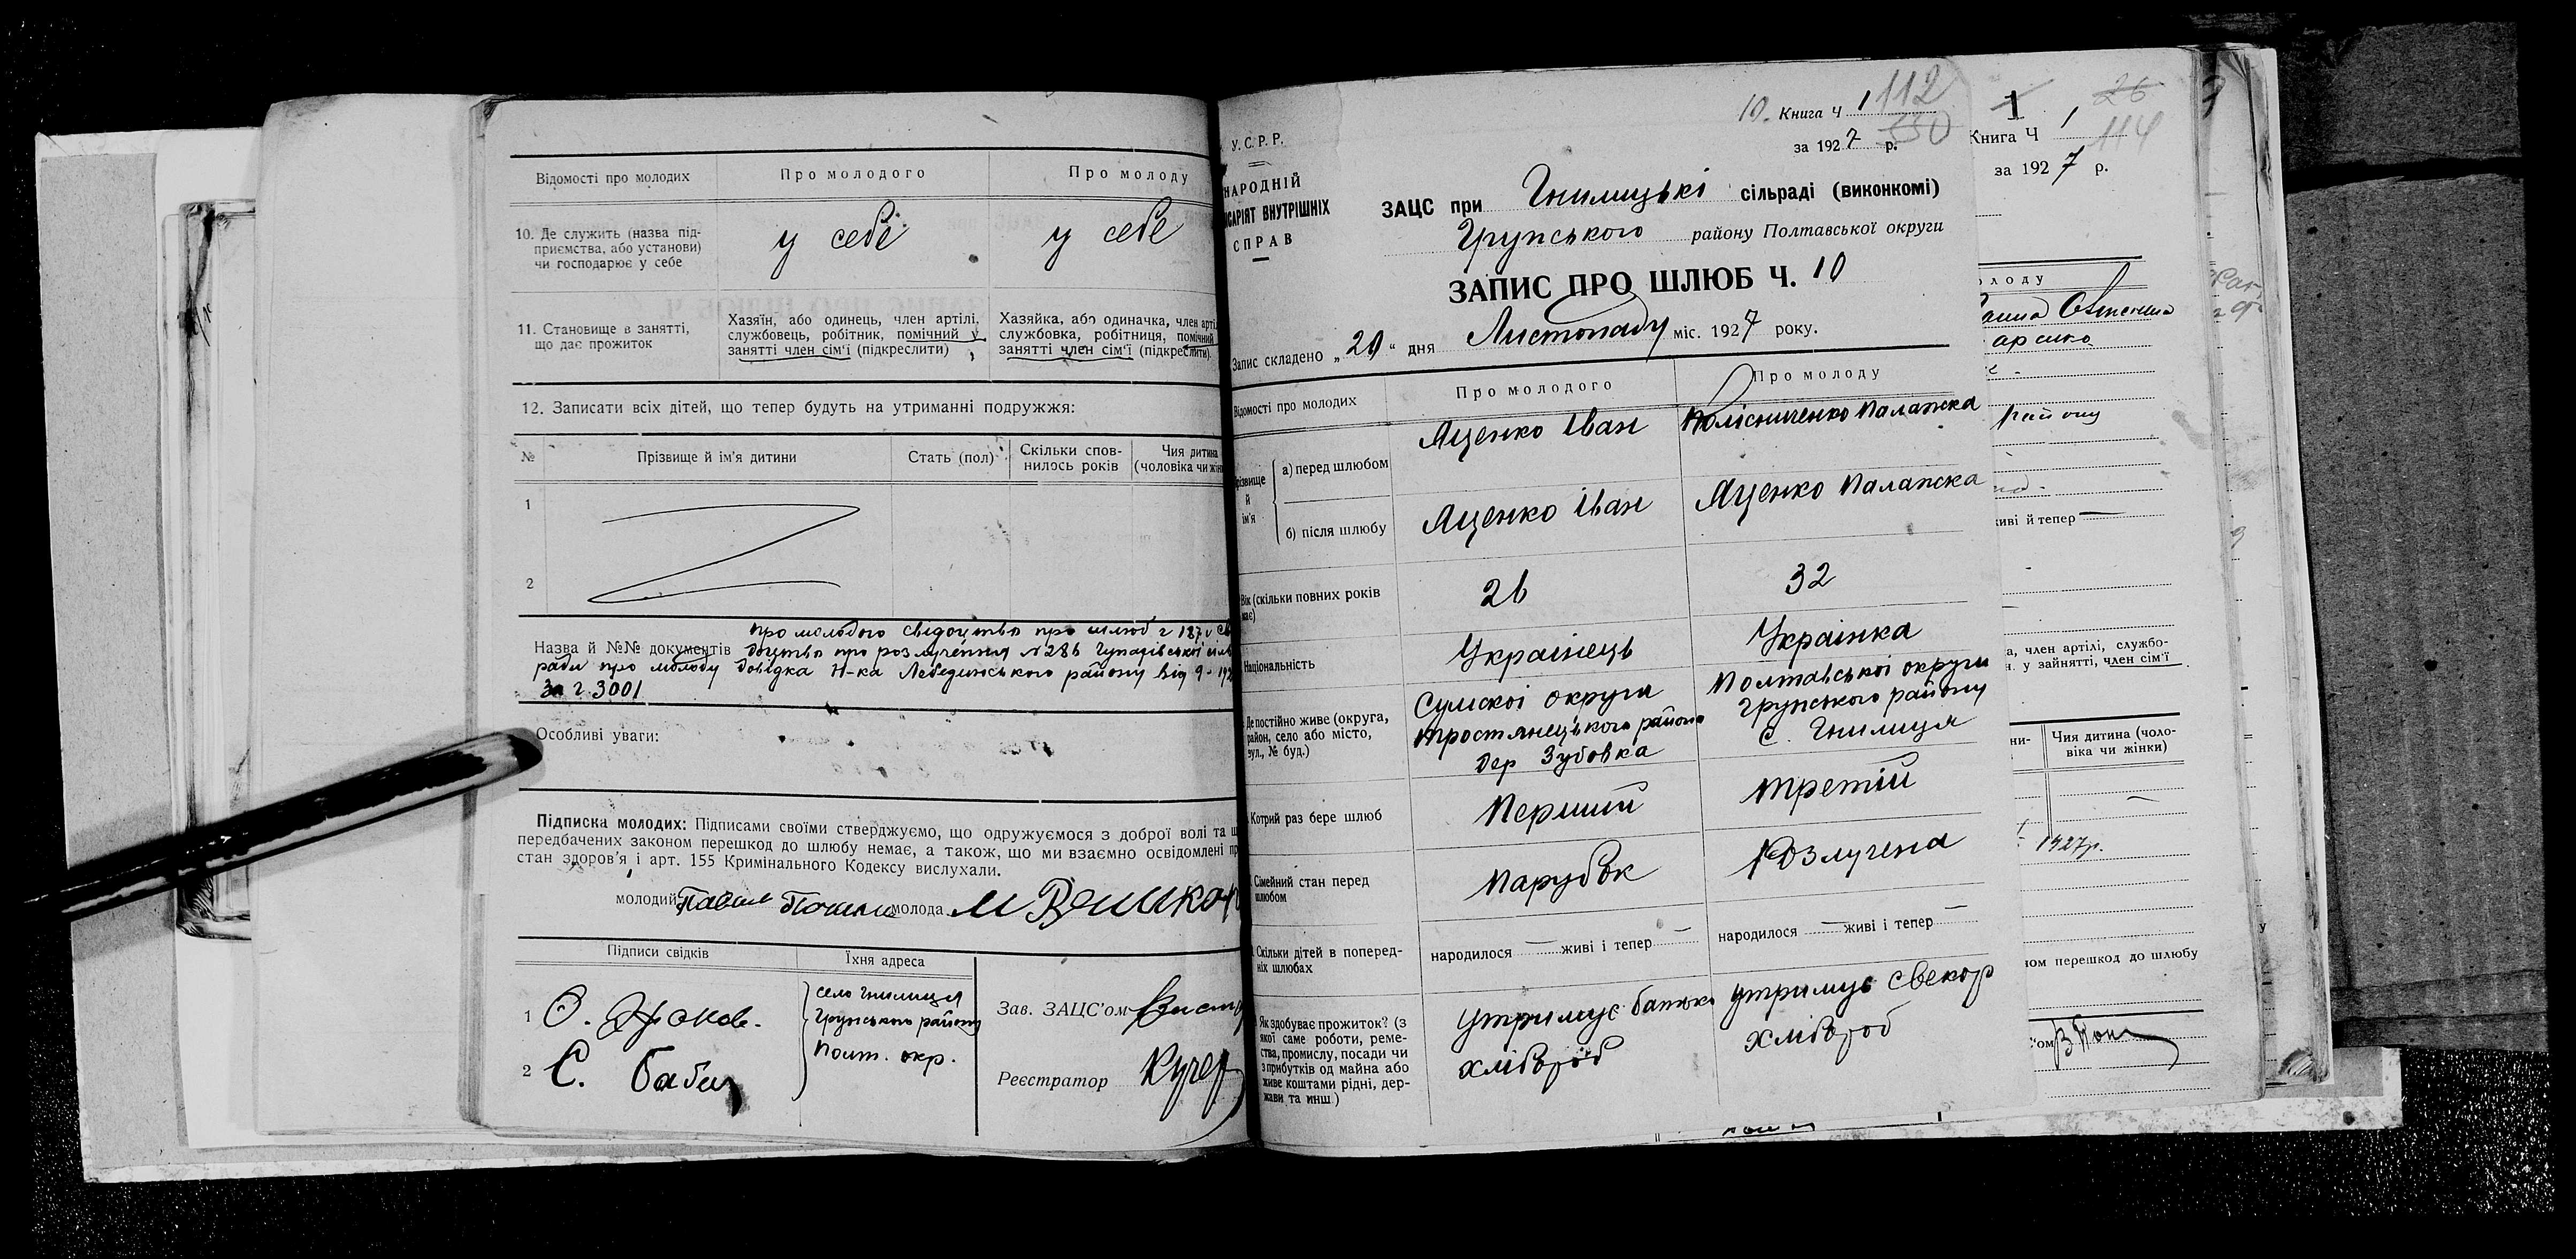 Відомості про молодих
Про молодого
Про молоду
10. Де служить (назва під-
приємства, або установи)
чи господарює у себе
у себе
у себе
11. Становище в занятті,
що дає прожиток
Хазяїн, або одинець, член артілі,
службовець, робітник, помічний у
занятті член сім'ї (підкреслити)
Хазяйка, або одиначка, член арті
службовка, робітниця, помічний
занятті член сім'ї (підкреслити).
12. Записати всіх дітей, що тепер будуть на утриманні подружжя:
№
Прізвище й ім'я дитини
Стать (пол)
Скільки спов-
нилось років
Чия дитина
(чоловіка чи жін
1
2
про молодого свідоцтво про шлюб ч 187 и св
Назва й №№ документів доцтво про розлучення № 286 сіль
ради про молоду довідка Н-ка Лебединського району від 9-
за ч. 3001
Особливі уваги:
Підписка молодих: Підписами своїми стверджуємо, що одружуємося з доброї волі та щ
передбачених законом перешкод до шлюбу немає, а також, що ми взаємно освідомлені пр
стан здоров'я і арт. 155 Кримінального Кодексу вислухали.
молодий Павло молода М
Підписи свідків
Їхня адреса
1 О.
село Гнилиця
Грунського району
Полт. окр.
2 Є. Бабич
Зав. ЗАЦС'ом
Реєстратор Кучер
У.С.Р.Р.
НАРОДНІЙ
САРІЯТ ВНУТРІШНІХ
СПРАВ
10. Книга Ч 1 112
за 1927 р. 350
ЗАЦС при Гнилицькі сільраді (виконкомі)
Грунського району Полтавської округи
ЗАПИС ПРО ШЛЮБ Ч. 10
Запис складено „20“ дня Листопаду міс. 1927 року.
Відомості про молодих
Про молодого
Про молоду
різвище
й
ім'я
а) перед шлюбом
Яценко Іван
Колісниченко Палажка
б) після шлюбу
Яценко Іван
Яценко Палажка
Вік (скільки повних років
має)
26
32
Національність
Украінець
Украінка
Де постійно живе (округа,
район, село або місто,
вул., № буд.)
Сумскоі округи
тростянецького району
дер Зубовка
Полтавськоі округи
Грунського району
с. Гнилиця
Котрий раз бере шлюб
Перший
третій
Сімейний стан перед
шлюбом
Парубок
Розлучена
Скільки дітей в поперед-
ніх шлюбах
народилося — живі і тепер —
народилося — живі і тепер —
Як здобуває прожиток? (з
якої саме роботи, реме-
ства, промислу, посади чи
з прибутків од майна або
живе коштами рідні, дер-
жави та инш.)
утримує батько
хлібороб
утримує свекор
хлібороб
1
26
Книга Ч 1
114
за 1927 р.
олоду
району
живі й тепер —
а, член артілі, службо-
н. у зайнятті, член сім'ї
ни-
Чия дитина (чоло-
віка чи жінки)
1927р.
ом перешкод до шлюбу
'ом